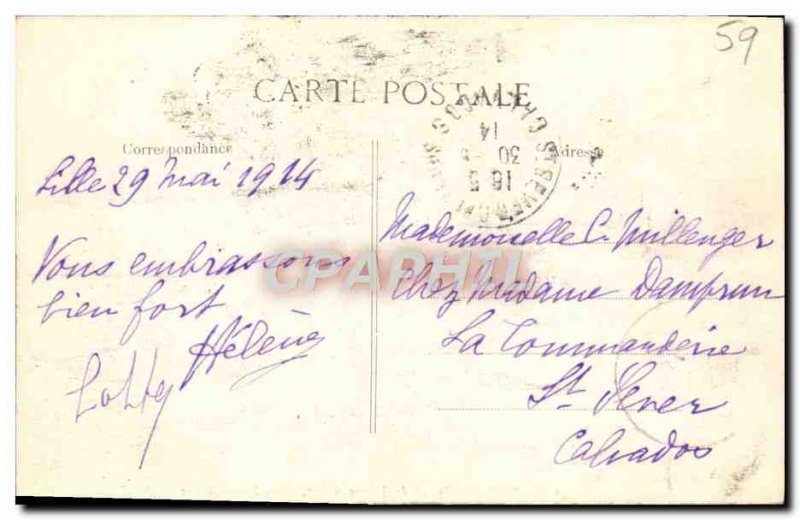 59
CARTE POSTALE
Correspondance
Adresse
16 5
30
14
Lille 29 Mai 1914
Vous embrassons
bien fort
Hélène
Mademoiselle C. Millenger
Chez Madame Damprun
La Commanderie
St Sever
Calvados
CPAPHIL